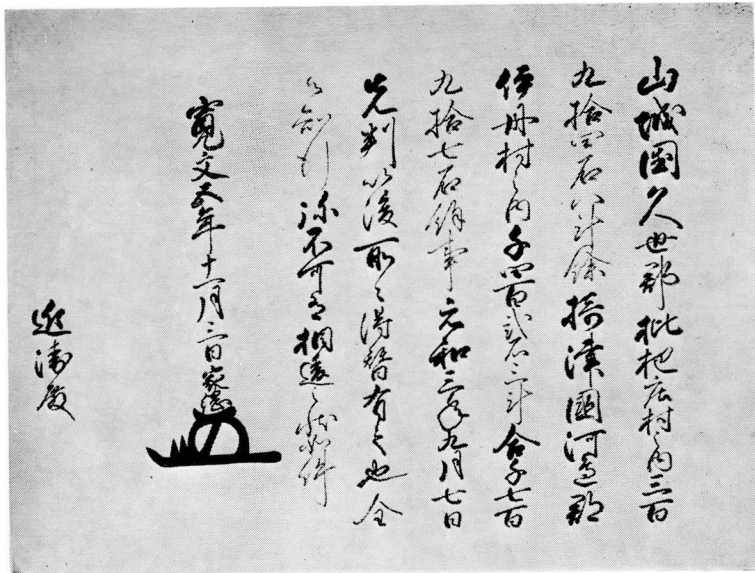 山城國久世郡枇杷庄村之内三百
九拾四石八斗餘摂津國河邊郡
伊丹村之内千四百弐石三斗合千七百
九拾七石餘事元和三年九月七日
先判以後所々得替有之也全
可知行弥不可有相違之状如件
寛文五年十一月三日家綱
近衛殿